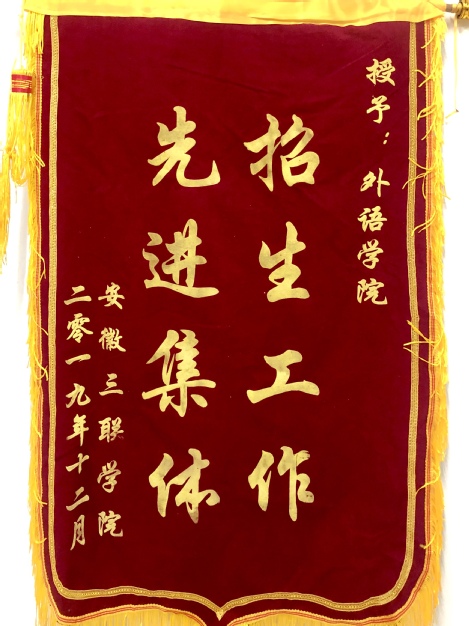 授予：外语学院
招生工作
先进集体
安徽三联学院
二零一九年十二月